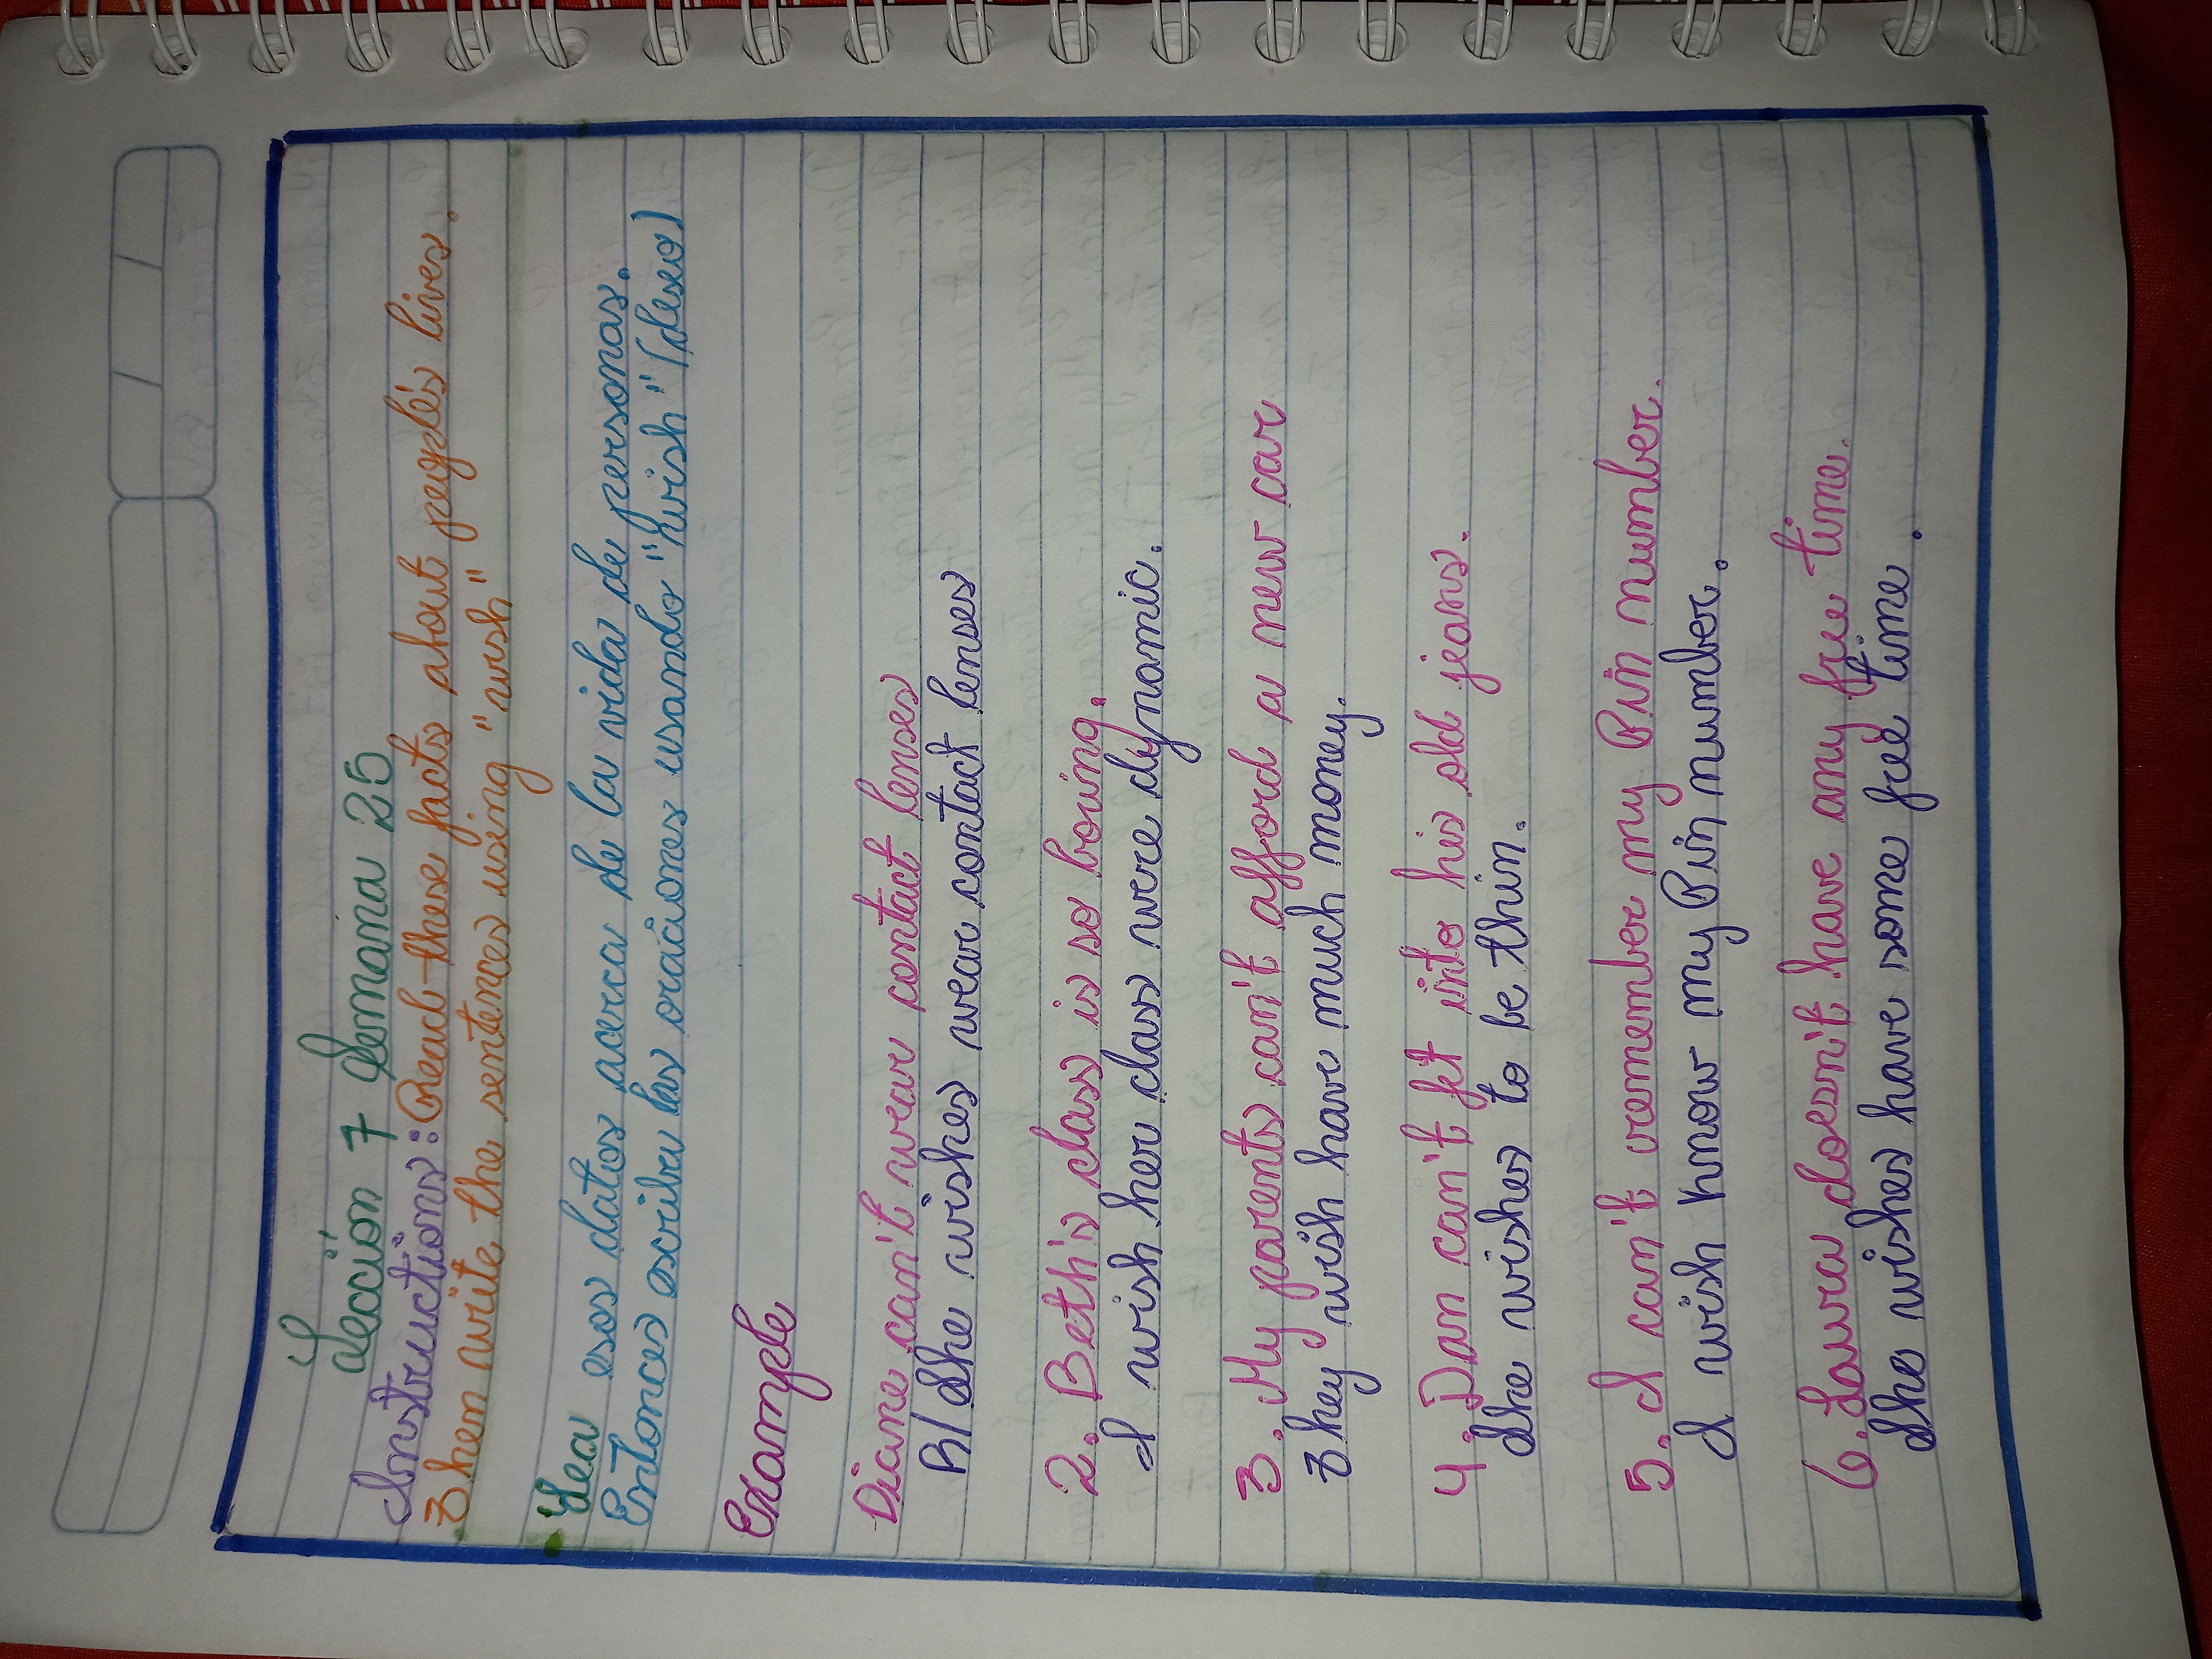 Lección 7 Semana 25
Instructions: Read these facts about people's lives.
Then write the sentences using "wish"
Lea esos datos acerca de la vida de personas.
Entonces escriba las oraciones usando "wish" (deseo)
Example
Diane can't wear contact lenses
R/ She wishes wear contact lenses
2. Beth's class is so boring.
I wish her class were dynamic.
3. My parents can't afford a new car
They wish have much money.
4. Dan can't fit into his old jeans.
She wishes to be thin.
5. I can't remember my Pin number.
I wish know my Pin number.
6. Laura doesn't have any free time.
She wishes have some free time.